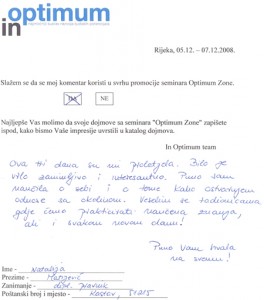 in optimum
Rijeka, 05.12. – 07.12.2008.
Slažem se da se moj komentar koristi u svrhu promocije seminara Optimum Zone.
DA NE
Najljepše Vas molimo da svoje dojmove sa seminara "Optimum Zone" zapišete
ispod, kako bismo Vaše impresije uvrstili u katalog dojmova.
In Optimum team
Ova tri dana su mi proletjela. Bilo je
vrlo zanimljivo i interesantno. Puno sam
naučila o sebi i o tome kako ostvarujem
odnose sa okolinom. Veselim se radionicama
gdje ćemo prakticirati naučena znanja,
ali i svakom novom danu!
Puno Vam hvala
na svemu!
Ime - Natalija
Prezime -
Zanimanje - dipl. pravnik
Poštanski broj i mjesto - Kastav, 51215